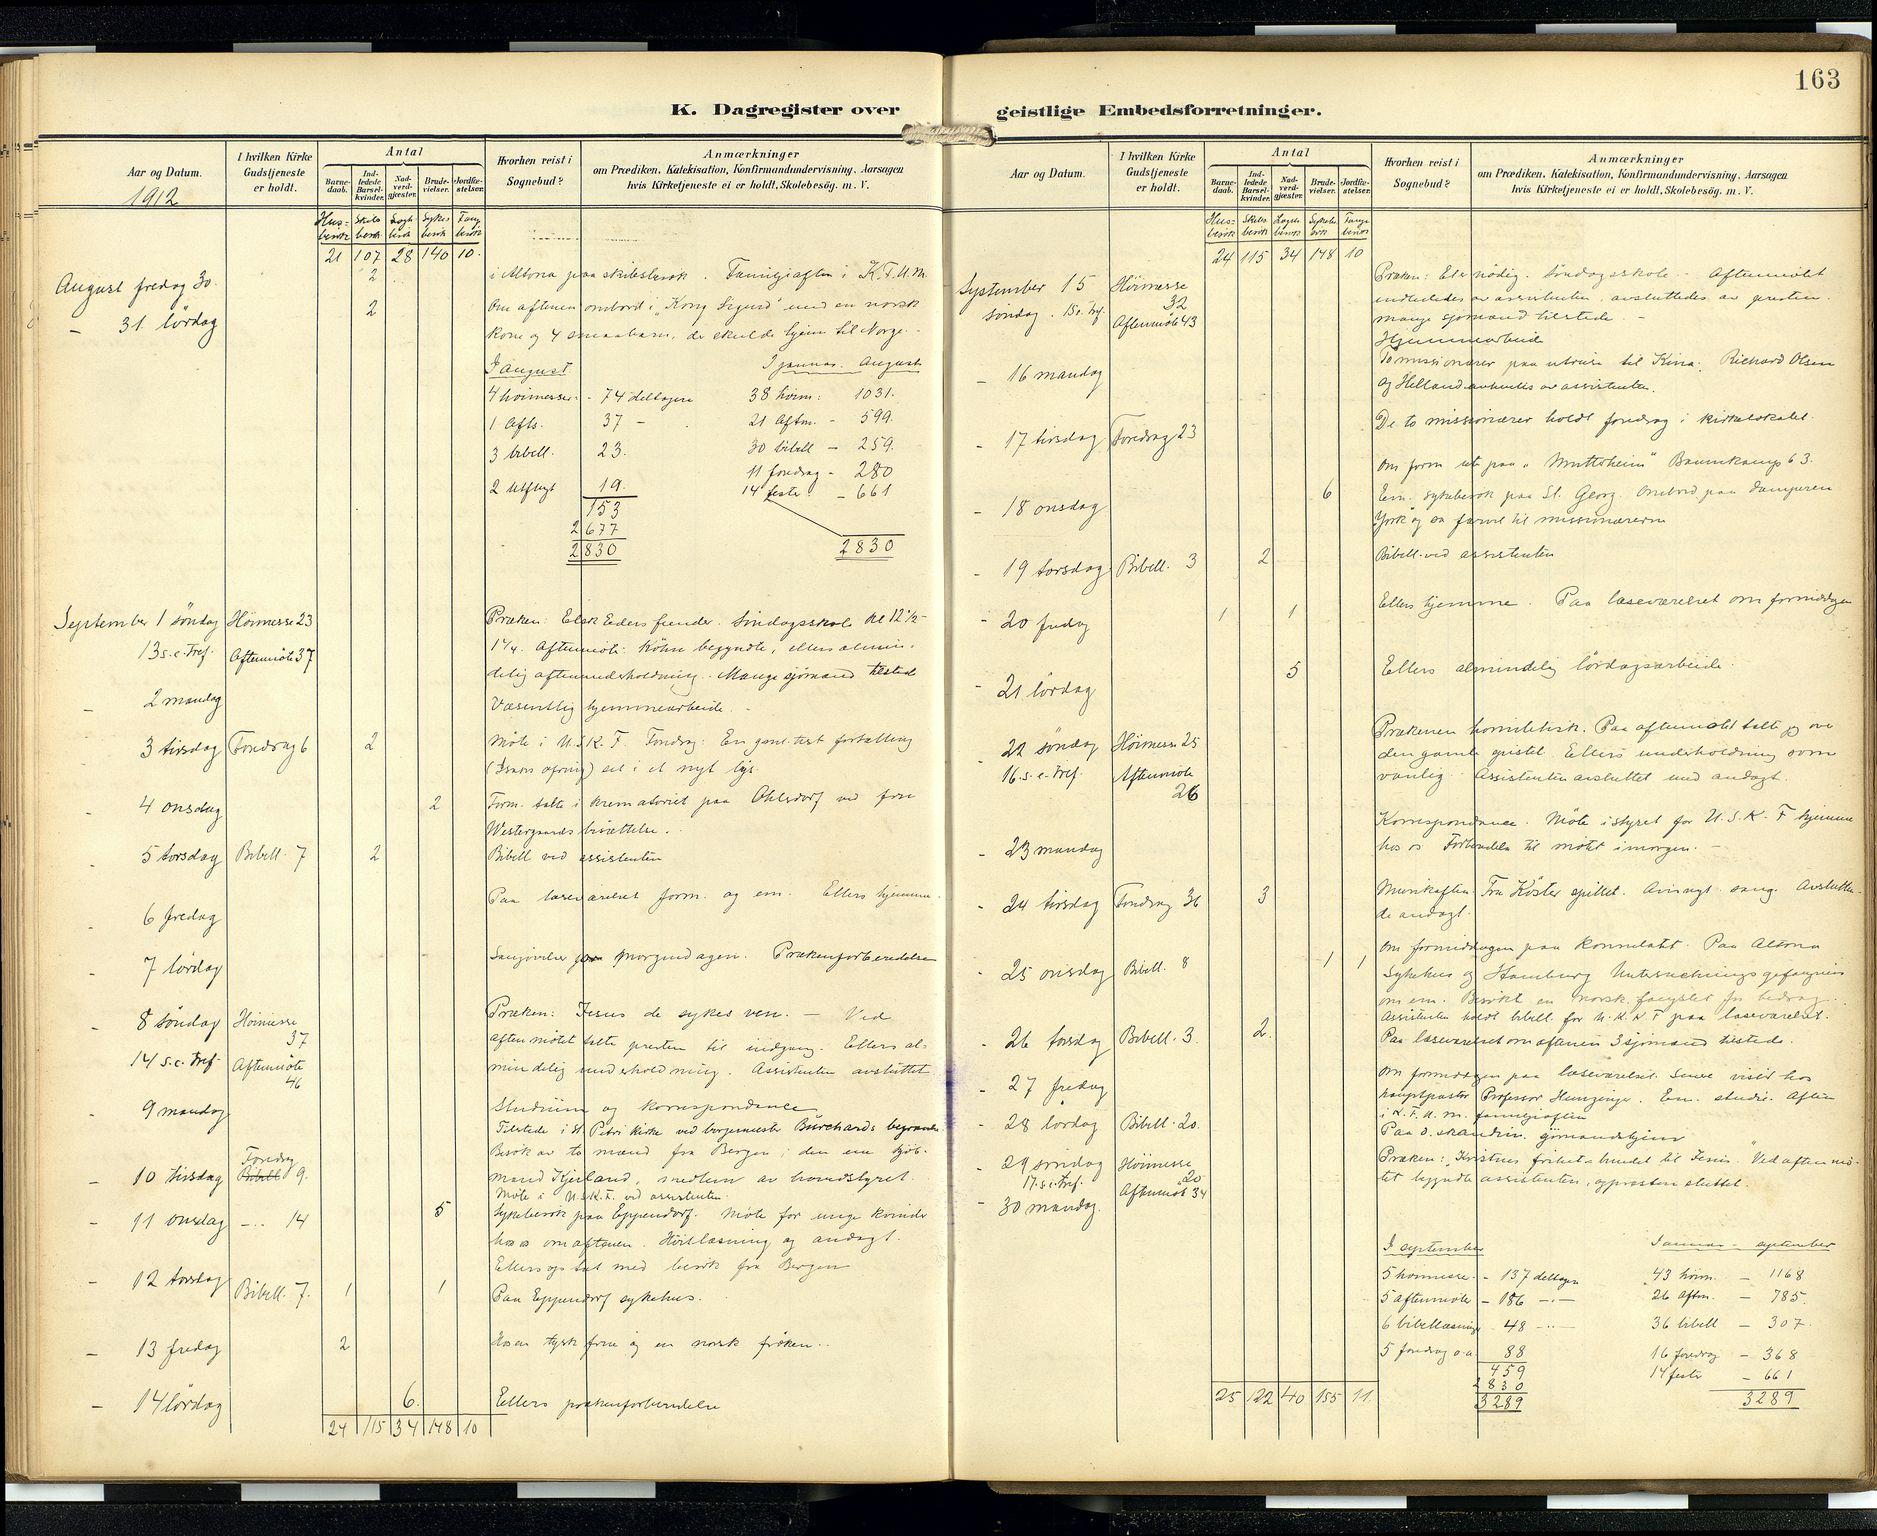 K. Dagregister over
Aar og Datum.
1912
I hvilken Kirke Gudstjeneste er holdt.
Antal
Barnedaab.
Indledede Barselkvinder.
Nadverdgjester.
Brudevielser.
Jordfæstelser.
Hvorhen reist i Sognebud?
Anmærkninger
om Prædiken, Katekisation, Konfirmandundervisning, Aarsagen
hvis Kirketjeneste ei er holdt, Skolebesøg. m. V.
Husbesøk Skibsbesøk Sykebesøk
21 107 28 140 10.
August fredag 30. 2 i Altona paa skibsbesøk. Familjeaften i K.F.U.M.
– 31 lørdag 2 Om aftenen ombord i "Kong Sigurd" med en norsk
kone og 4 smaabarn, der skulde hjem til Norge.
I august. I januar – August
4 høimesser – 74 deltagere 38 høim: 1031.
1 Afts. 37 – 21 Aftm. – 599.
3 bibell. 23. 30 bibell – 259.
11 foredrag – 280
2 Utflugt 19. 14 feste – 661
153
2677
2830 2830
September 1 søndag Høimesse 23 Præken: Elsk Eders fiender. Søndagsskole kl 12½–
13 s.e.Tref. Aftenmøte 37 1¼. Aftenmøte: begyndte, ellers almin-
delig aftenunderholdning. Mange sjømænd tilstede
– 2 mandag Væsentlig hjemmearbeide. –
3 tirsdag Foredrag 6 2 Møte i U.S.K.F. Foredrag: En gml. test. fortælling
(Isaks ofring) set i et nyt lys.
4 onsdag 2 Form. talte i krematoriet paa Ohlsdorf ved fru
Westergaards bisættelse.
5 torsdag Bibell. 7 2 Bibell ved assistenten
6 fredag Paa læseværelset form. og em. Ellers hjemme.
7 lørdag morgendagen. Prækenforberedelse
8 søndag Høimesse 37 Præken: Jesus de sykes ven. – Ved
14 s.e.Tref. Aftenmøte 46 aftenmøtet talte presten til indgang. Ellers al-
mindelig underholdning. Assistenten avsluttet
9 mandag Studium og korrespondance
Tilstede i St. Petri Kirke ved borgemester Burchards begravelse
10 tirsdag Foredrag Bibell 9. Besøk av to mænd fra Bergen; den ene
Møte i U.S.K.F. ved assistenten.
– 11 onsdag –..– 14 5 Sykebesøk paa Eppendorf. Møte for unge kvinder
hos os om aftenen. Høitlæsning og andagt.
Ellers optat med besøk fra Bergen
– 12 torsdag Bibell. 7. 1 1 Paa Eppendorf sykehus.
– 13 fredag 2 Hos en tysk frue og en norsk frøken.
– 14 lørdag 6. Ellers prækenforberedelse
24 115 34 148 10
163
geistlige Embedsforretninger.
Aar og Datum.
I hvilken Kirke Gudstjeneste er holdt.
Antal
Barnedaab.
Indledede Barselkvinder.
Nadverdgjester.
Brudevielser.
Jordfæstelser.
Hvorhen reist i Sognebud?
Anmærkninger
om Prædiken, Katekisation, Konfirmandundervisning, Aarsagen
hvis Kirketjeneste ei er holdt, Skolebesøg. m. V.
24 115 34 148 10
September 15 Høimesse 32 Præken: Et er nødig. Søndagsskole – Aftenmøtet
søndag. 15 s. Tref. Aftenmøte 43 indlededes av assistenten, avsluttedes av presten.
Mange sjømænd tilstede. –
Hjemmearbeide
– 16 mandag To missionærer paa utreise til Kina, Richard Olsen
og Helland avhentes av assistenten.
– 17 tirsdag Foredrag 23 De to missionærer holdt foredrag i kirkelokalet.
Om form. paa Baumkamp 63.
– 18 onsdag 6 Em. sykebesøk paa St. Georg. Ombord paa damperen
"York" og sa farvel til missionærerne
– 19 torsdag Bibell. 3 2 Bibell. ved assistenten
– 20 fredag 1 1 Ellers hjemme. Paa læseværelset om formiddagen
– 21 lørdag 5 Ellers almindelig lørdagsarbeide.
– 22 søndag Høimesse 25 Prækenen homiletisk. Paa aftenmøtet talte jeg over
16. s.e.Tref. Aftenmøte 26 Ellers underholdning som
vanlig. Assistenten avsluttet med andagt.
– 23 mandag Korrespondance. Møte i styret for U.S.K.F hjemme
hos os. Forberedelse til møtet imorgen. –
– 24 tirsdag Foredrag 36 3 Musikaften. Frk Köster spillet. sang. Avslutten-
de andagt.
– 25 onsdag Bibell. 8 1 1 Om formiddagen paa konsulatet. Paa Altona
Sykehus og Hamburg Untersuchungsgefängnis
om em. Besøkt en norsk, fængslet for bedrag.
Assistenten holdt bibell. for U.K.K.F paa læseværelset.
– 26 torsdag Bibell. 3. 2. Paa læseværelset om aftenen 3 sjømænd tilstede.
– 27 fredag Om formiddagen paa læseværelset. Senere visit hos
hauptpastor Professor Em. studie. Aften
i K.F.U.M. familjeaften
– 28 lørdag Bibell. 20. Paa d. skandin. sjømandshjem
– 29 søndag Høimesse 20 Præken: Kristnes frihet bundet til Jesus. Ved aftenmø-
17. s.e.Tref. Aftenmøte 34 tet begyndte assistenten, og presten sluttet.
– 30 mandag.
I september Januar – september
5 høimesse. – 137 deltagere 43 høim. – 1168
5 aftenmøte – 186 –..– 26 Aftm. – 785.
6 bibellæsning – 48 –..– 36 bibell – 307.
5 foredrag o.a. 88 16 foredrag – 368
459 14 feste – 661
2830
3289 3289
25 122 40 155 11.